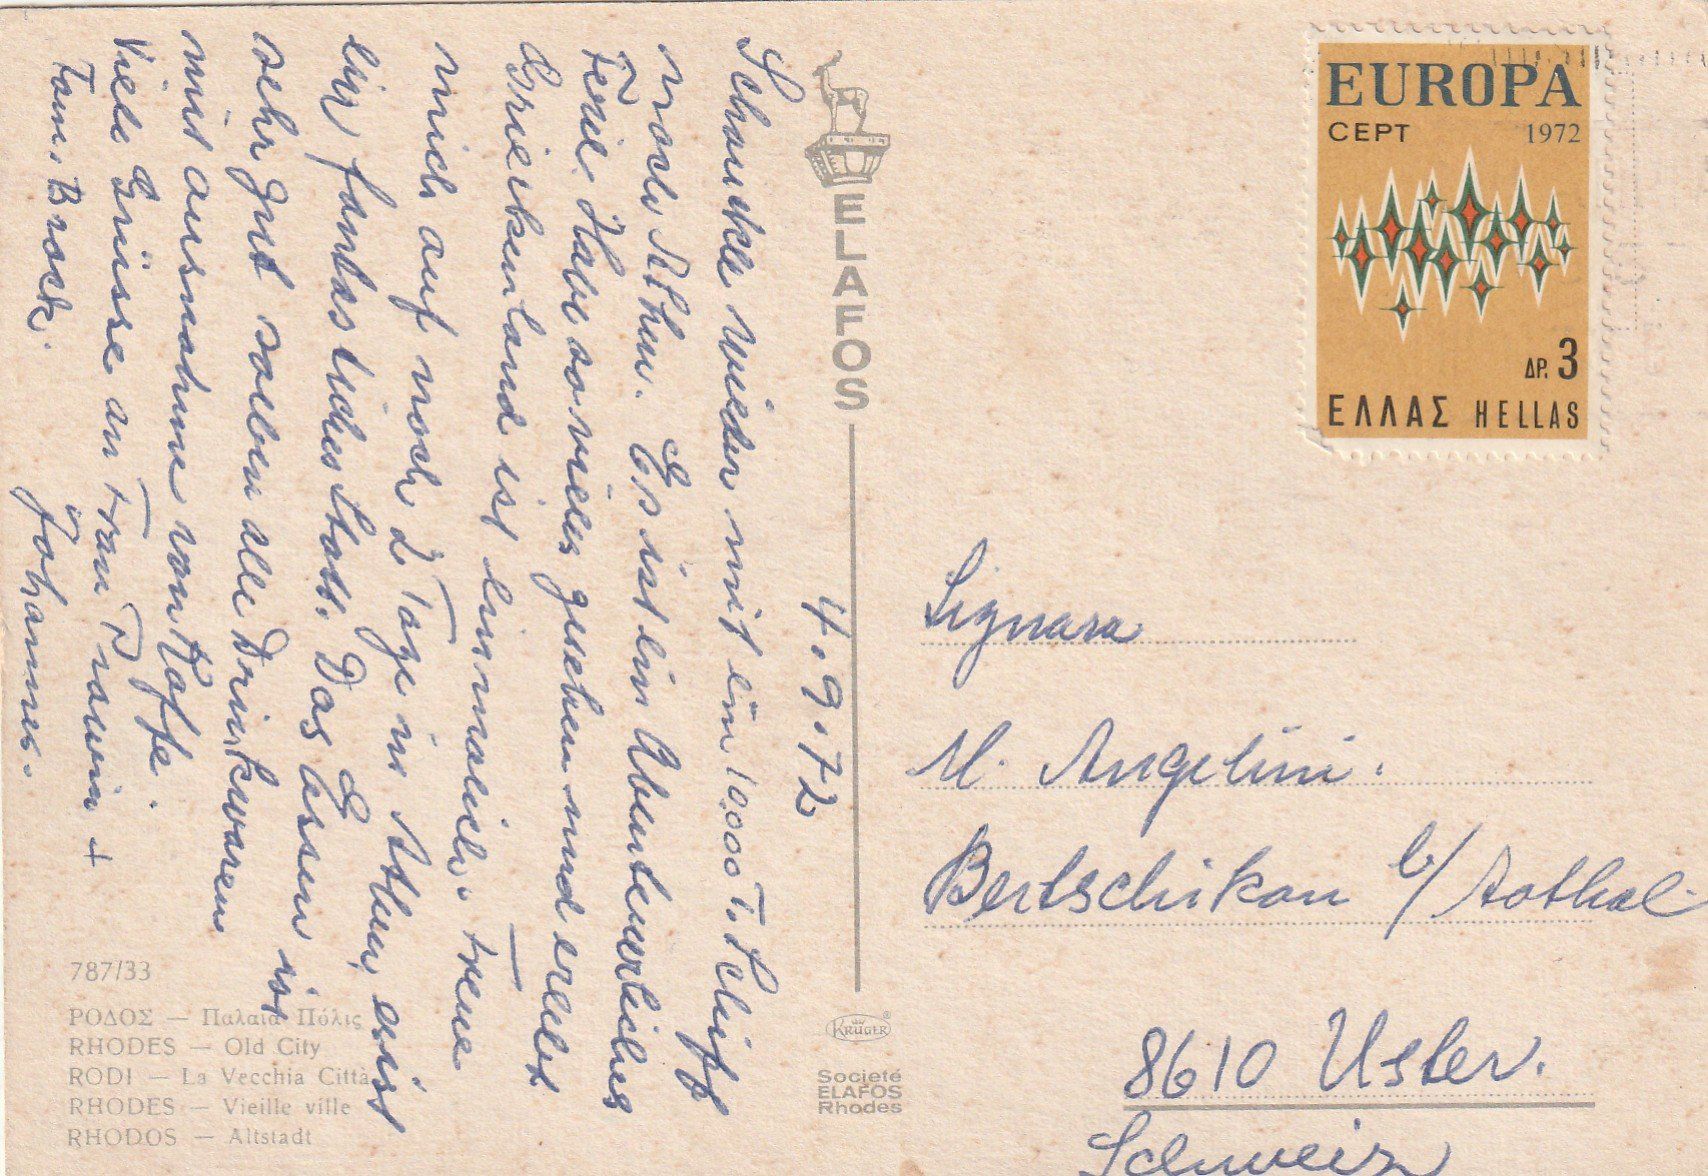 4.9.72
Schaukle wieder mit ein 10000 T. Schiff
nach Athen. Es ist ein Abenteuerliches
Ferie. Habe so vieles gesehen und erlebt
Griechenland ist einmalich. Freue
mich auf noch 2 Tage in Athen, ist
ein fantastliches Stadt. Das Essen ist
sehr gut sowie alle Drinkwaren
mit ausnahme von Kaffe.
Viele Grüsse an Frau +
Fam. Brock.
Johannes.
787/33
ΡΟΔΟΣ — Παλαιὰ Πόλις
RHODES — Old City
RODI — La Vecchia Città
RHODES — Vieille ville
RHODOS — Altstadt
ELAFOS
KRÜGER
Societé
ELAFOS
Rhodes
EUROPA
CEPT 1972
ΔΡ. 3
ΕΛΛΑΣ HELLAS
Signora
M. Angelini.
Bertschikon b/ Aathal
8610 Uster.
Schweiz